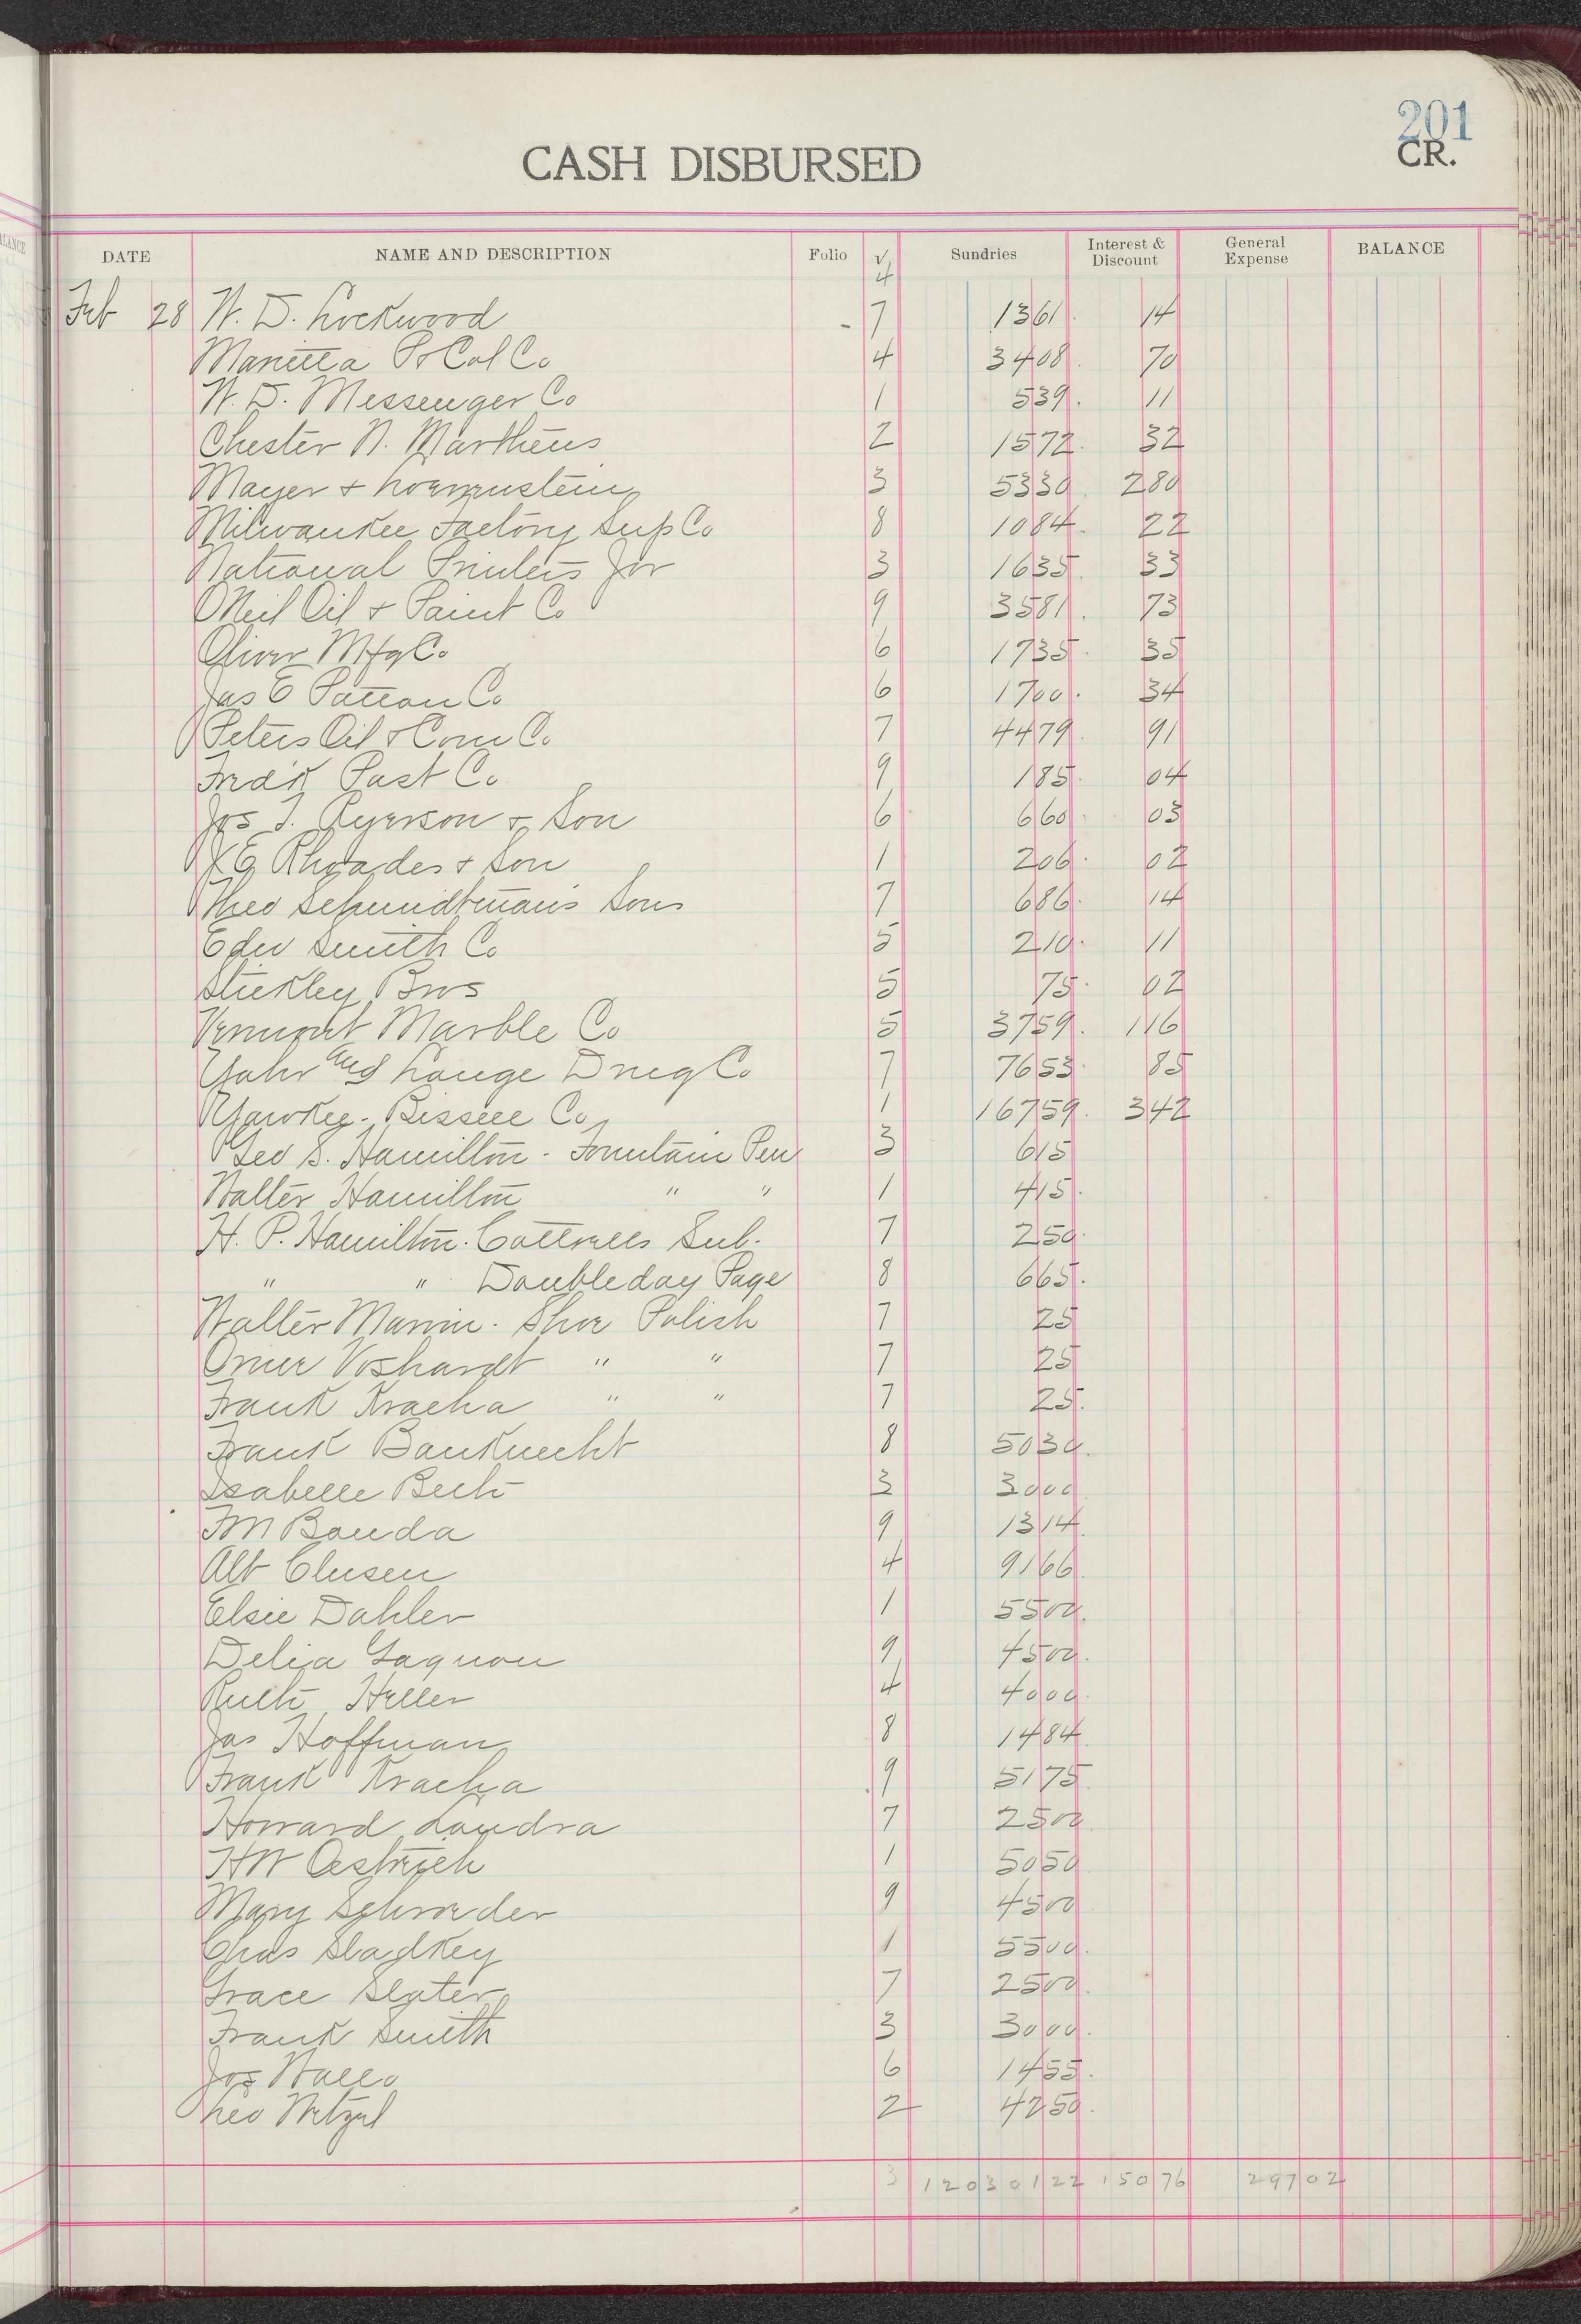 201
CR.
CASH DISBURSED
DATE NAME AND DESCRIPTION Folio √ Sundries Interest & Discount General Expense BALANCE
4
Feb 28 W. D. Lockwood 7 1361 14
Marietta P & Col Co 4 3408 70
W. D. Messenger Co 1 539 11
Chester N. Marthens 2 1572 32
Mayer & Loewenstein 3 5330 280
Milwaukee Factory Sup Co 8 1084 22
National Printers Jor 3 1635 33
O'Neil Oil & Paint Co 9 3581 73
Oliver Mfg Co 6 1735 35
Jas E Patton Co 6 1700 34
Peters Oil & Com Co 7 4479 91
Fred'k Post Co 9 185 04
Jos T. Ryerson & Son 6 660 03
J E Rhoades & Son 1 206 02
Theo Schmidtman's Sons 7 686 14
Edw Smith Co 5 210 11
Stickley Bros 5 75 02
Vermont Marble Co 5 3759 116
Yahr and Lange Drug Co 7 7653 85
Yawkey-Bissell Co 1 16759 342
Geo S. Hamilton - Fountain Pen 3 615
Walter Hamilton " " 1 415
H. P. Hamilton. Cottrells Sub. 7 250
" " Doubleday Page 8 665
Walter - Shoe Polish 7 25
Omer Voshardt " " 7 25
Frank Kracha " " 7 25
Frank Bauknecht 8 5030
Isabelle 3 3000
FM Bouda 9 1314
Alb Clusen 4 9166
Elsie Dahler 1 5500
Delia Gagnon 9 4500
Ruth Heller 4 4000
Jas Hoffman 8 1484
Frank Kracha 9 5175
Howard Londra 7 2500
HW Oestreich 1 5050
Mary Schroeder 9 4500
Chas Sladkey 1 5500
Grace Slater 7 2500
Frank Smith 3 3000
Jos 6 1455
Leo Wetzel 2 4250
3 12030122 15076 29702